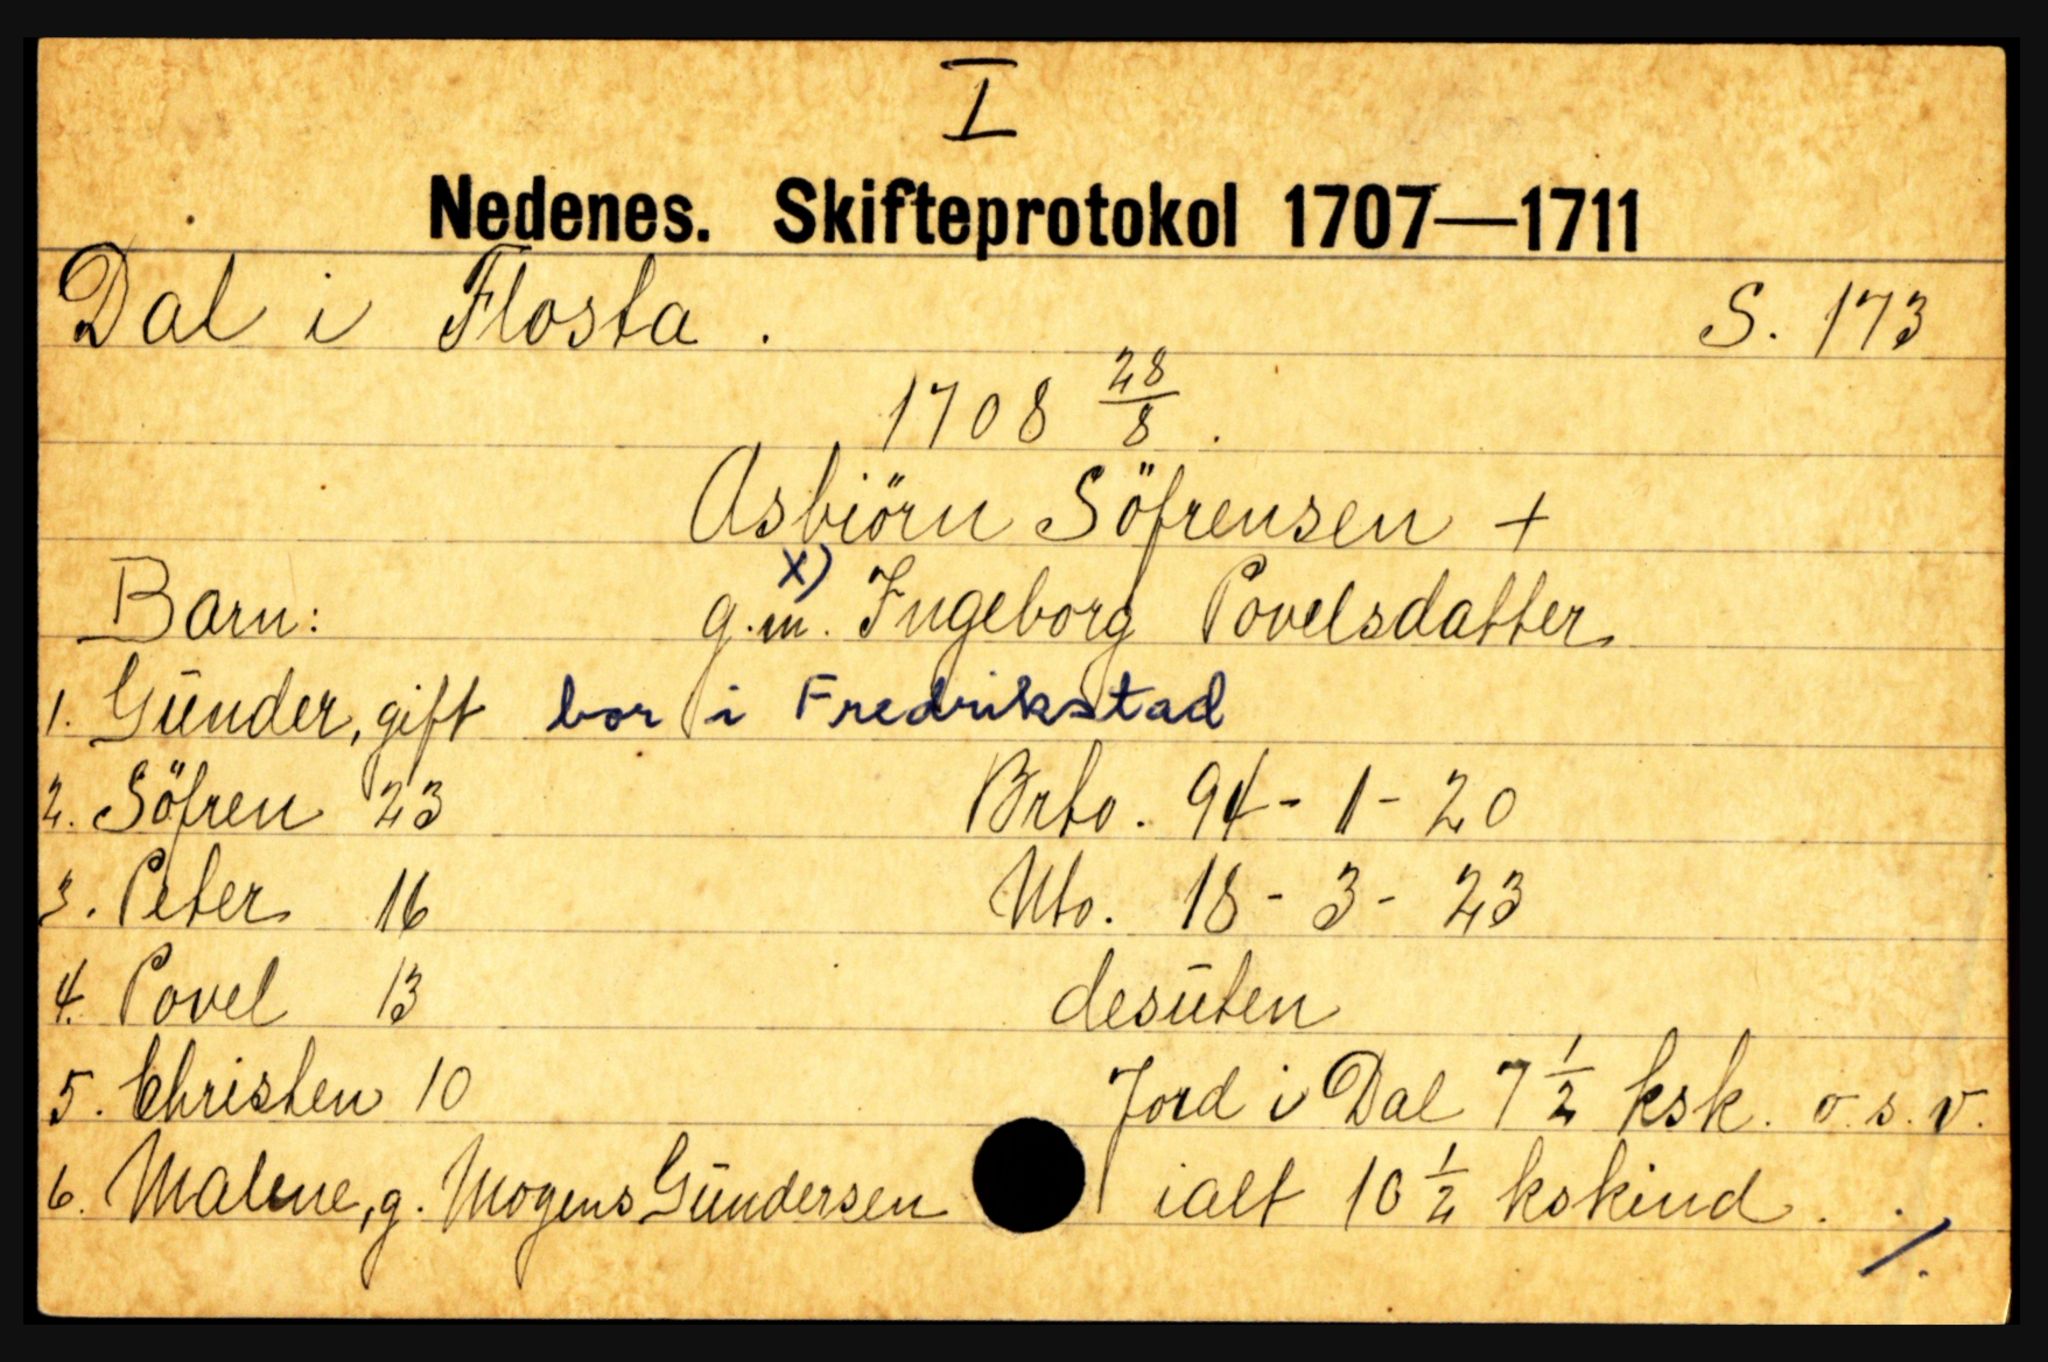 I
Nedenes. Skifteprotokol 1707—1711
Dal i Flosta. S. 173
1708 28/8.
Asbiörn Söfrensen +
Barn: g.m. x) Ingeborg Povelsdatter
1. Gūnder, gift bor i Fredrikstad
2. Söfren 23 Brto. 94 - 1 - 20
3. Peter 16 Uto. 18 - 3 - 23
4. Povel 13 desūten
5. Christen 10 Jord i Dal 7 1/2 ksk. o.s.v.
6. Malene, g. Mogens Gūndersen ialt 10 1/2 kskind. ./.